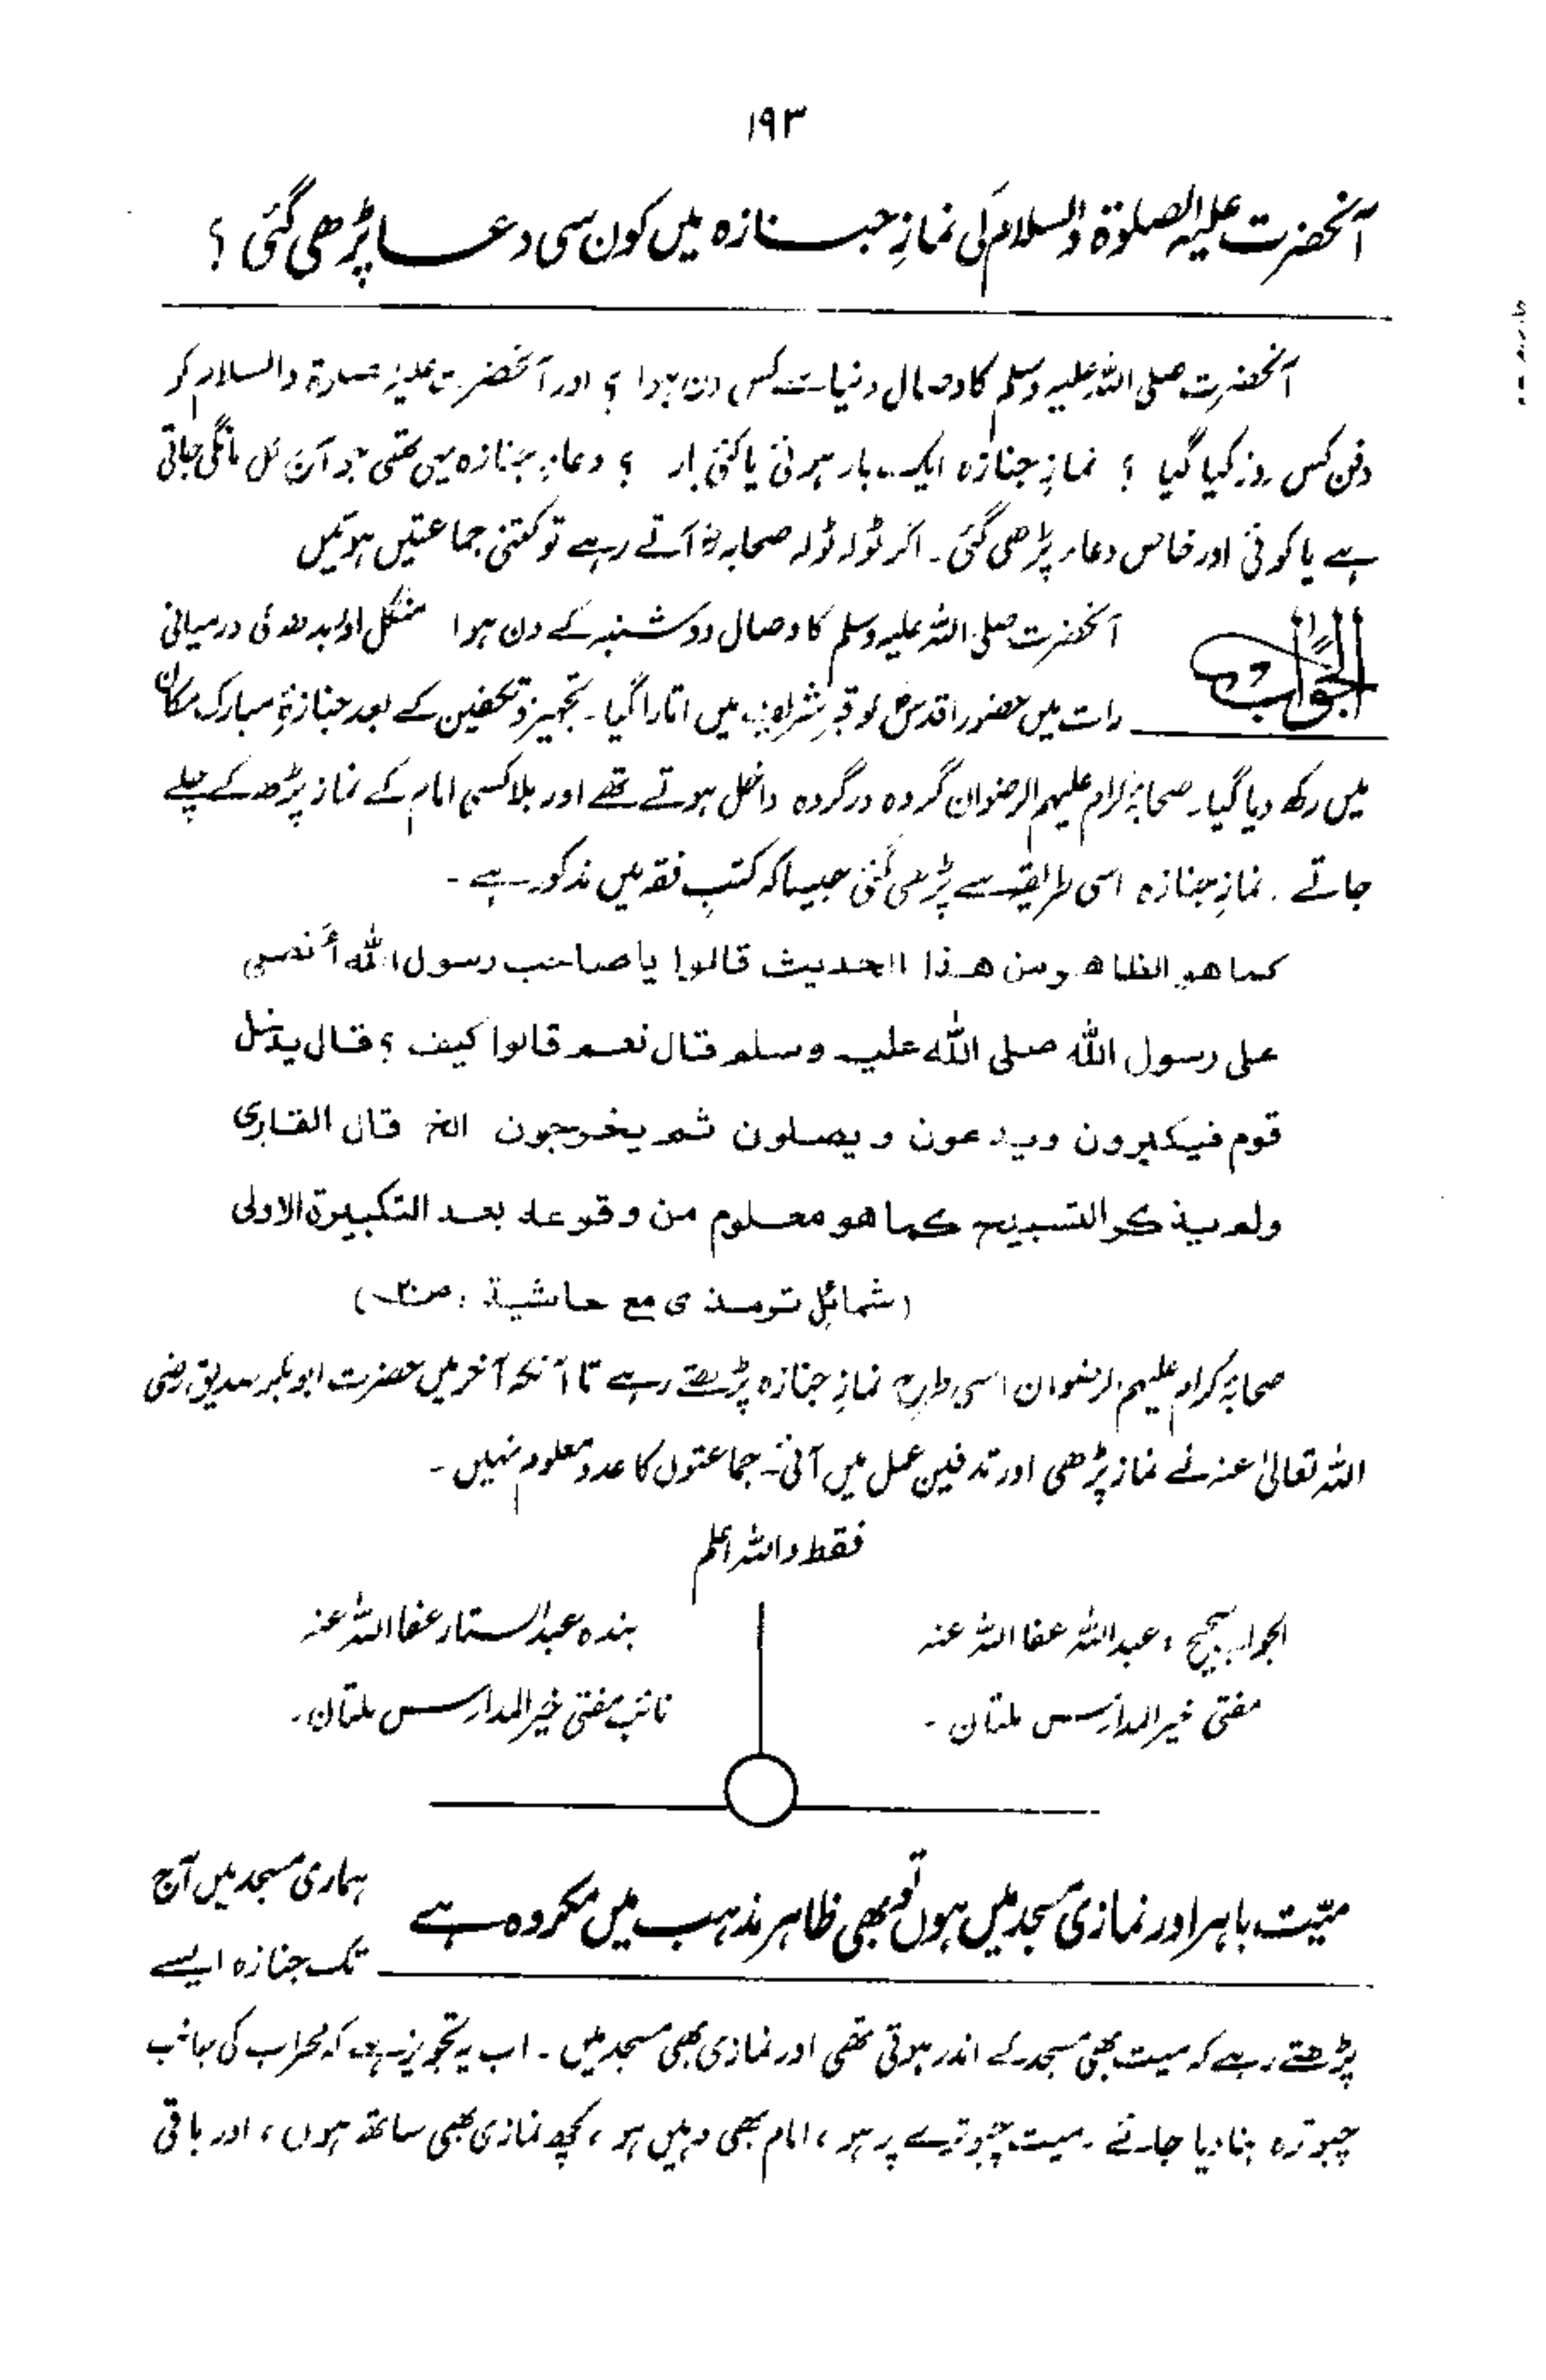 ۱۹۳
آنحضرت علیہ الصلوۃ والسلام کی نمازِ جنازہ میں کون سی دعا پڑھی گئی ؟
آنحضرت صلی اللہ علیہ وسلم کا وصال دنیا سے کس دن ہوا ؟ اور آنحضرت علیہ الصلوۃ والسلام کو
دفن کس روز کیا گیا ؟ نمازِ جنازہ ایک بار ہوئی یا کئی بار ؟ دعاء جنازہ میں تھی جو آج کل مانگی جاتی
ہے یا کوئی اور خاص دعاء پڑھی گئی۔ اگر ٹولہ ٹولہ صحابہؓ آتے رہے تو کتنی جماعتیں ہوئیں
الجواب
آنحضرت صلی اللہ علیہ وسلم کا وصال دوشنبہ کے دن ہوا منگل اور بدھ کی درمیانی
رات میں حضور اقدسؐ کو قبر شریف میں اتارا گیا۔ تجہیز و تکفین کے بعد جنازۂ مبارک مکان
میں رکھ دیا گیا۔ صحابہ کرام علیہم الرضوان گروہ در گروہ داخل ہوتے تھے اور بلا کسی امام کے نماز پڑھ کے چلے
جاتے ۔ نمازِ جنازہ اسی طریقہ سے پڑھی گئی جیسا کہ کتبِ فقہ میں مذکور ہے ۔
کما هو الظاهر من هذا الحدیث قالوا یا صاحب رسول اللہ أنصلی
علی رسول اللہ صلی اللہ علیہ وسلم قال نعم قالوا کیف ؟ قال یدخل
قوم فیکبرون ویدعون ویصلون ثم یخرجون الخ قال القاری
ولم یذکر التسبیح کما هو معلوم من وقوعہ بعد التکبیرة الاولی
(شمائل ترمذی مع حاشیة :
صحابہ کرام علیہم الرضوان اسی طرح نمازِ جنازہ پڑھتے رہے تا آنکہ آخر میں حضرت ابوبکر صدیق رضی
اللہ تعالیٰ عنہ نے نماز پڑھی اور تدفین عمل میں آئی۔ جماعتوں کا عدد معلوم نہیں ۔
فقط واللہ اعلم
الجواب صحیح ، عبداللہ عفا اللہ عنہ
مفتی خیر المدارس ملتان ۔
بندہ عبدالستار عفا اللہ عنہ
نائب مفتی خیر المدارس ملتان۔
میّت باہر اور نمازی مسجد میں ہوں تو بھی ظاہر مذہب میں مکروہ ہے
ہماری مسجد میں آج
تک جنازہ ایسے
پڑھتے رہے کہ میت بھی مسجد کے اندر ہوتی تھی اور نمازی بھی مسجد میں ۔ اب یہ تجویز ہے کہ محراب کی جانب
چبوترہ بنا دیا جائے ۔ میت چبوترے پر ہو ، امام بھی وہیں ہو ، کچھ نمازی بھی ساتھ ہوں ، اور باقی